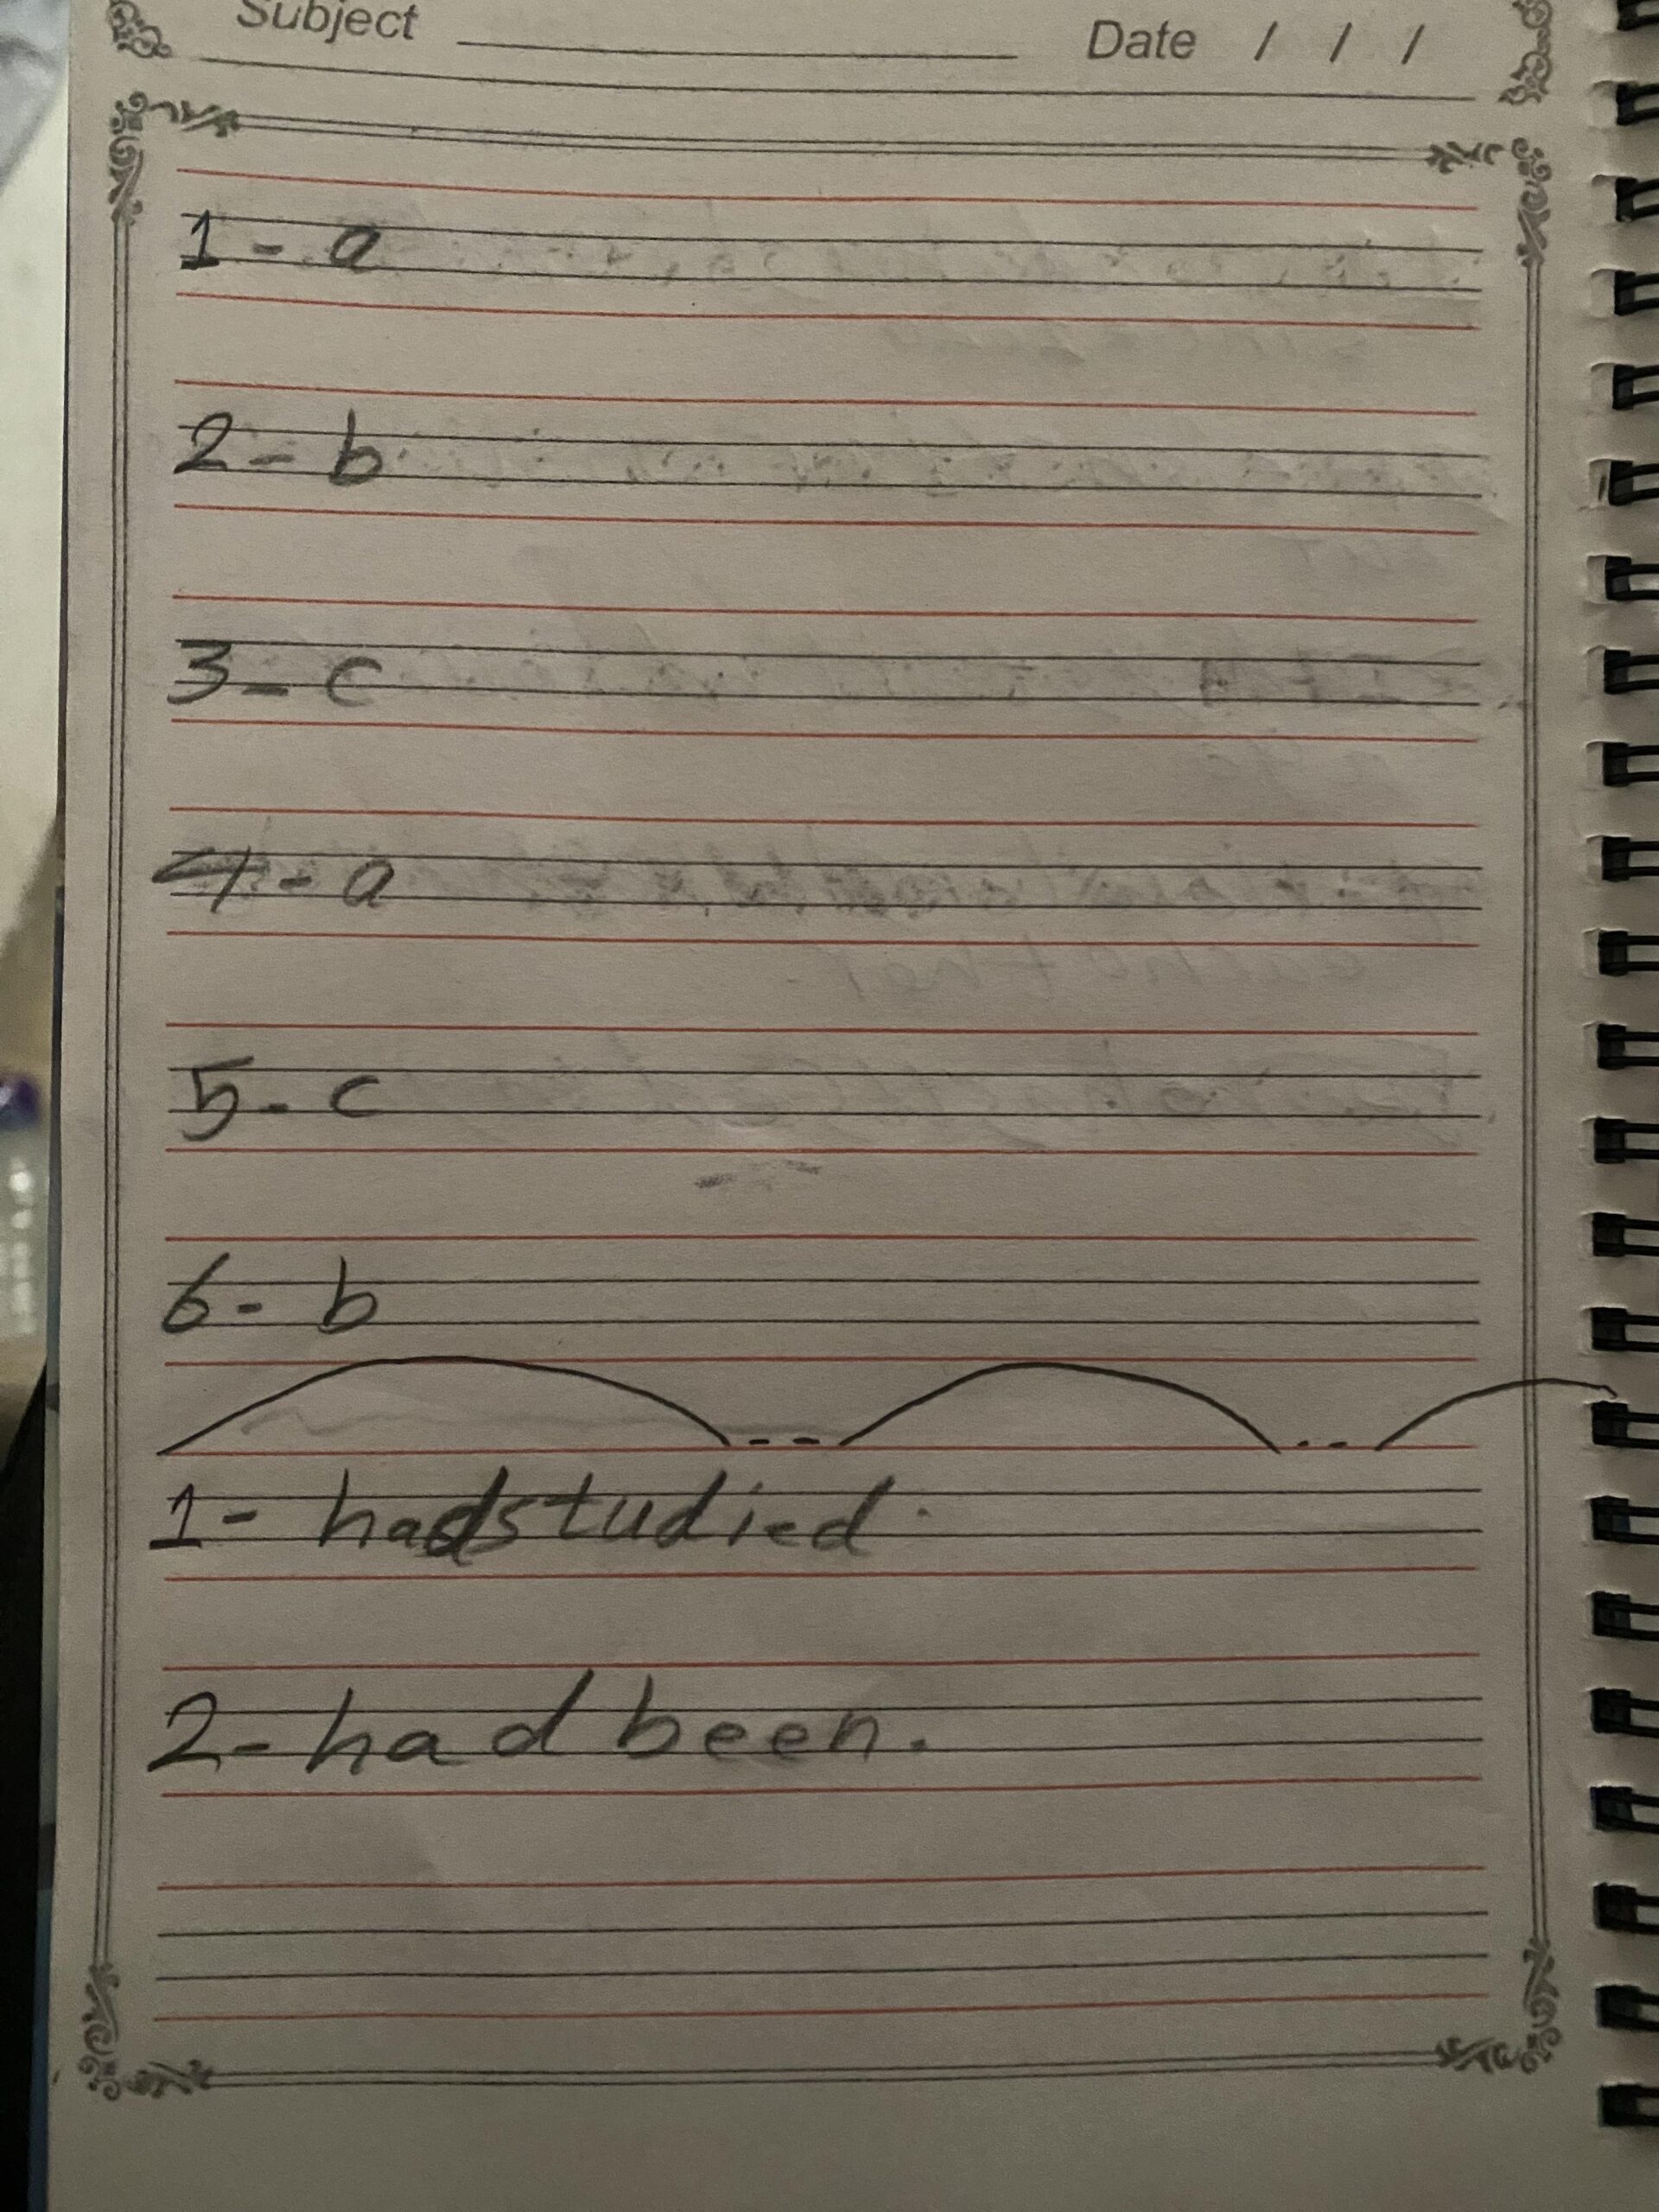 Subject Date / / /
1 - a
2 - b
3 - c
4 - a
5 - c
6 - b
1 - hadstudied.
2 - had been.